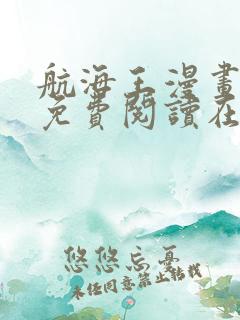 航海王漫畫
免費閱讀在
悠悠忘憂
未经同意禁止转载